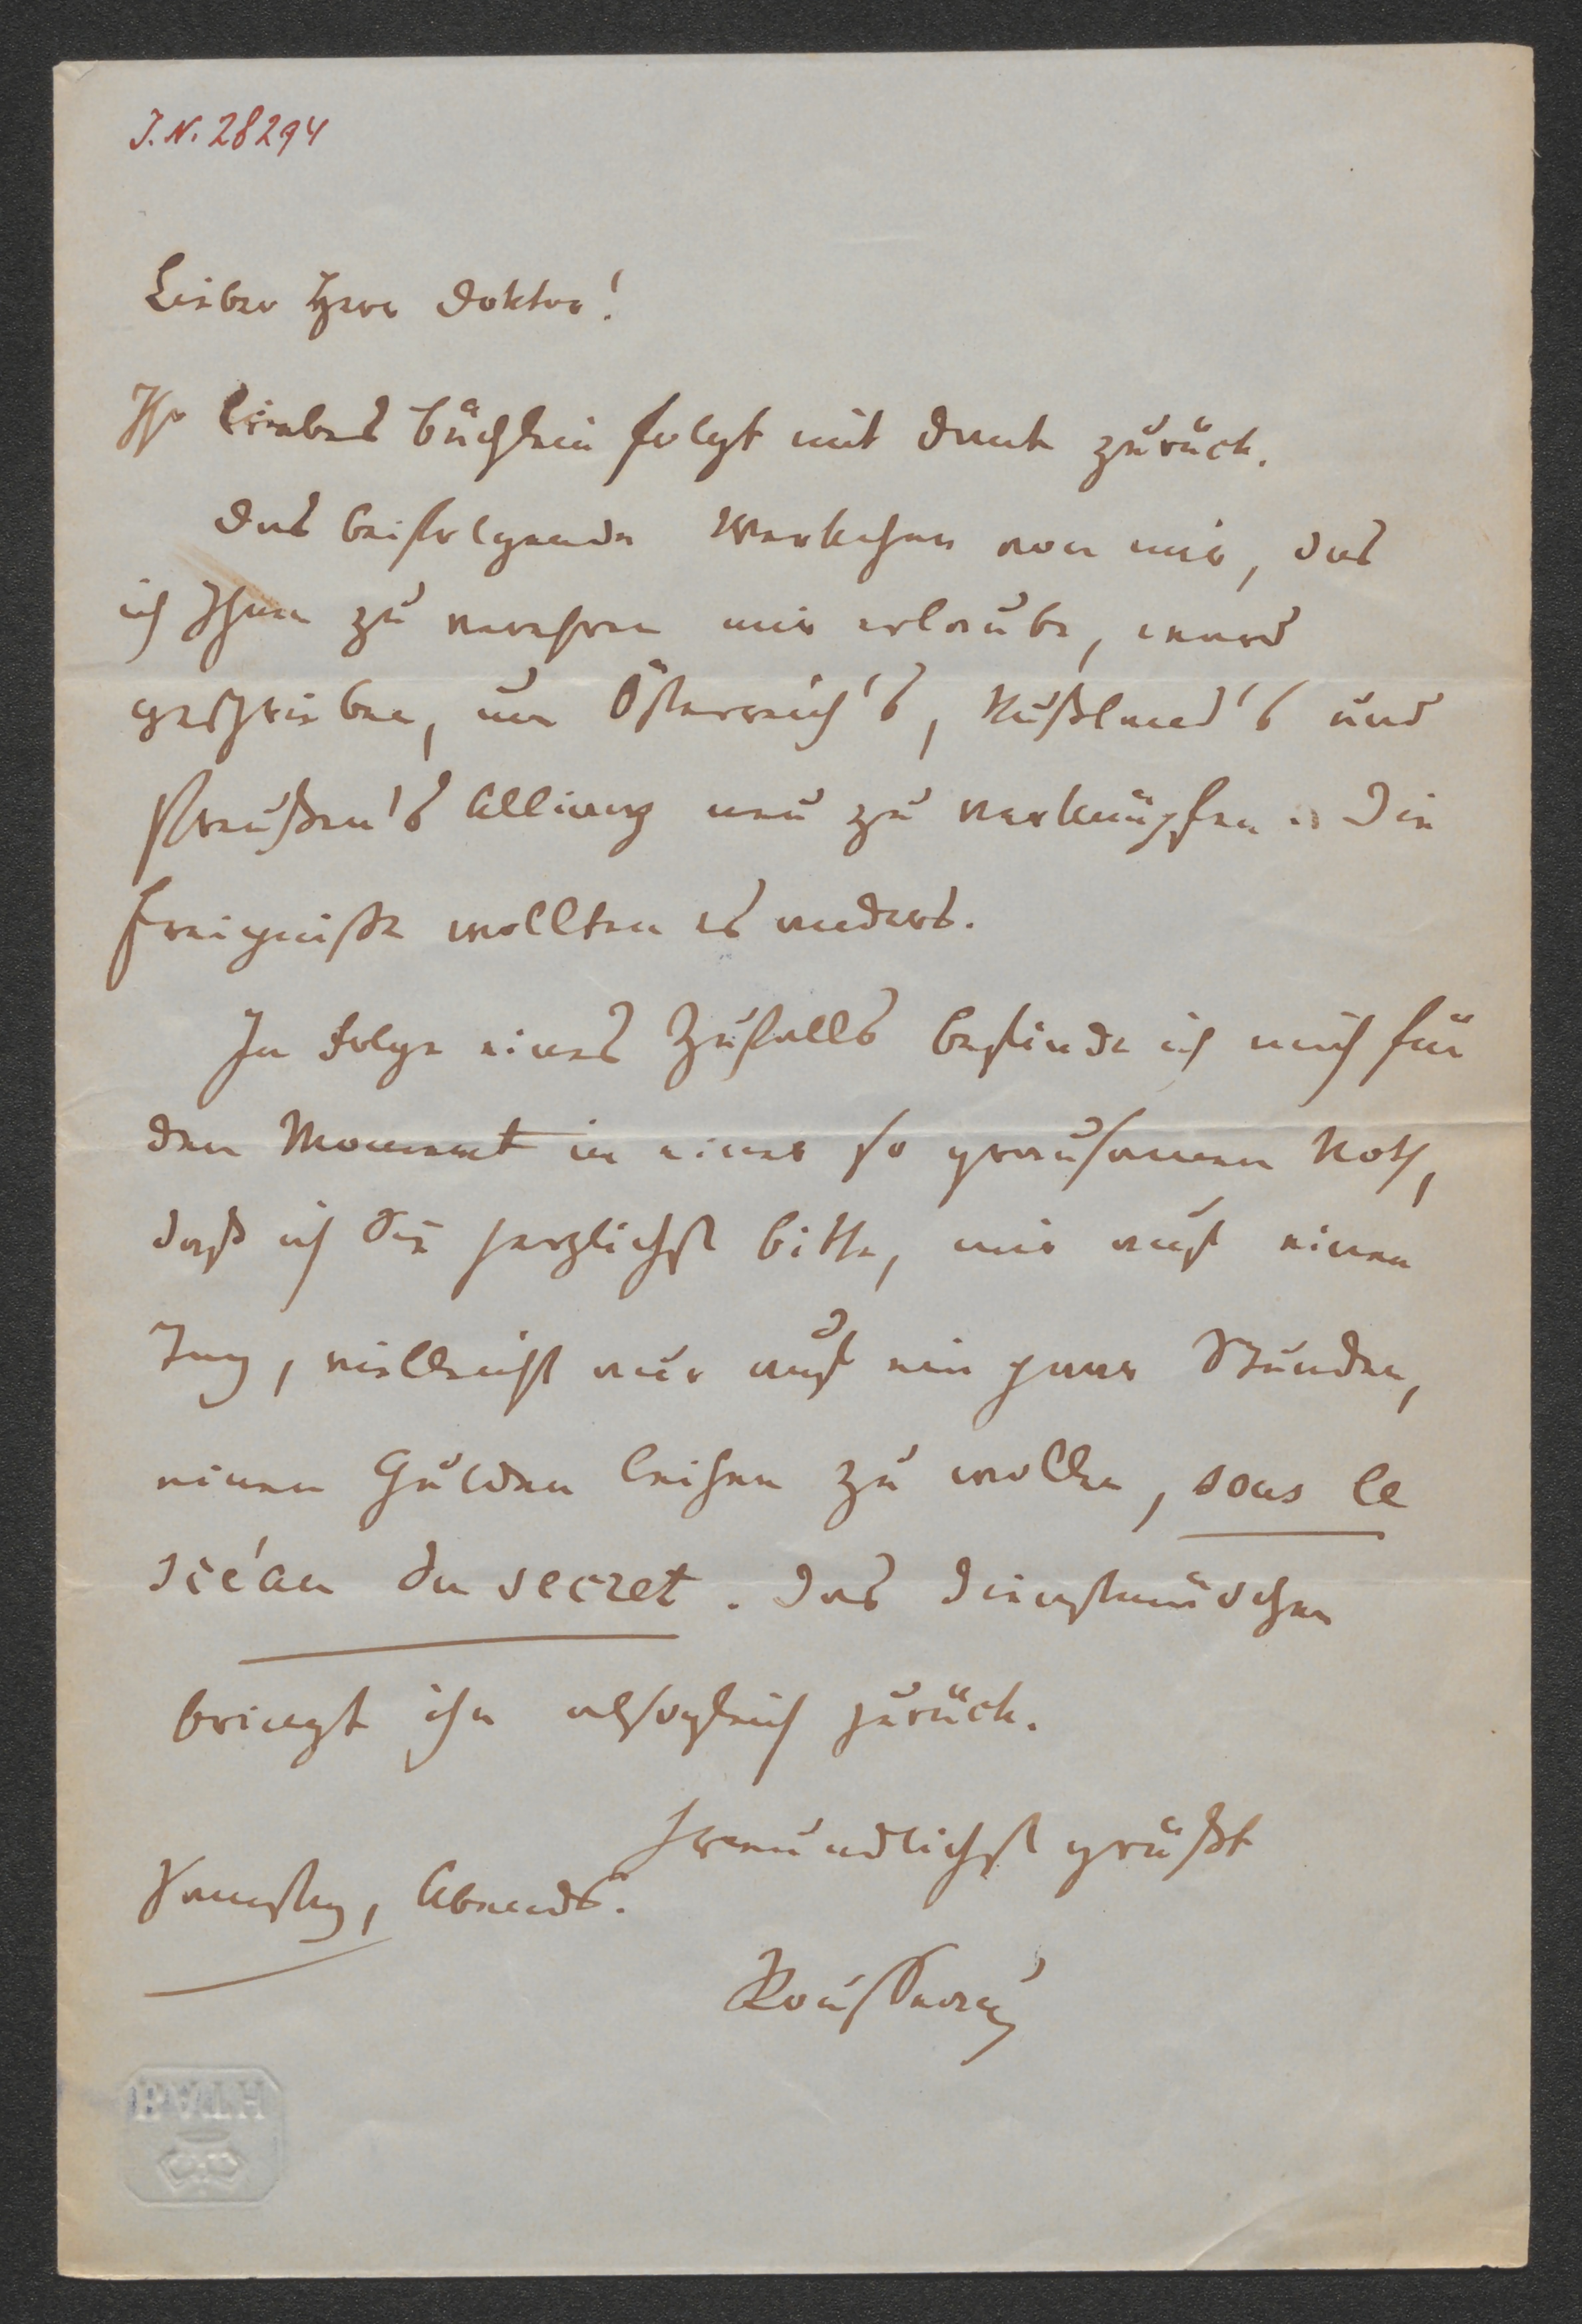 J.N. 28294
Lieber Herr Doktor!
Ihr liebes Büchlein folgt mit Dank zurück.
Das beifolgende Werkchen von mir, das
ich Ihnen zu verehren mir erlaube, ward
geschrieben, um Österreich's, Rußland's und
Preußen's Allianz neu zu verknüpfen. Die
Ereigniße wollten es anders.
In Folge eines Zufalls befinde ich mich für
den Moment in einer so grausamen Noth,
daß ich Sie herzlichst bitte, mir auf einen
Tag, vielleicht nur auf ein paar Stunden,
einen Gulden leihen zu wollen, sous le
scéau du secret. Das Dienstmädchen
bringt ihn alsogleich zurück.
Freundlichst grüßt
Samstag, Abends.
Rousseau
BATH